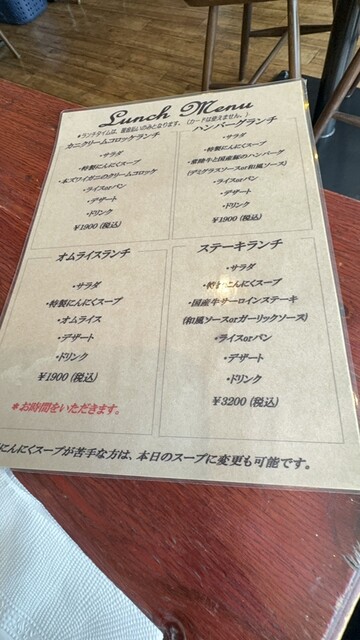 Lunch Menu
*ランチタイムは、現金払いのみとなります。(カードは使えません。)
カニクリームコロッケランチ
・サラダ
・特製にんにくスープ
・本ズワイガニのクリームコロッケ
・ライスorパン
・デザート
・ドリンク
¥1900(税込)
ハンバーグランチ
・サラダ
・特製にんにくスープ
・常陸牛と国産豚のハンバーグ
(デミグラスソースor和風ソース)
・ライスorパン
・デザート
・ドリンク
¥1900(税込)
オムライスランチ
・サラダ
・特製にんにくスープ
・オムライス
・デザート
・ドリンク
¥1900(税込)
*お時間をいただきます。
ステーキランチ
・サラダ
・特製にんにくスープ
・国産牛サーロインステーキ
(和風ソースorガーリックソース)
・ライスorパン
・デザート
・ドリンク
¥3200(税込)
にんにくスープが苦手な方は、本日のスープに変更も可能です。